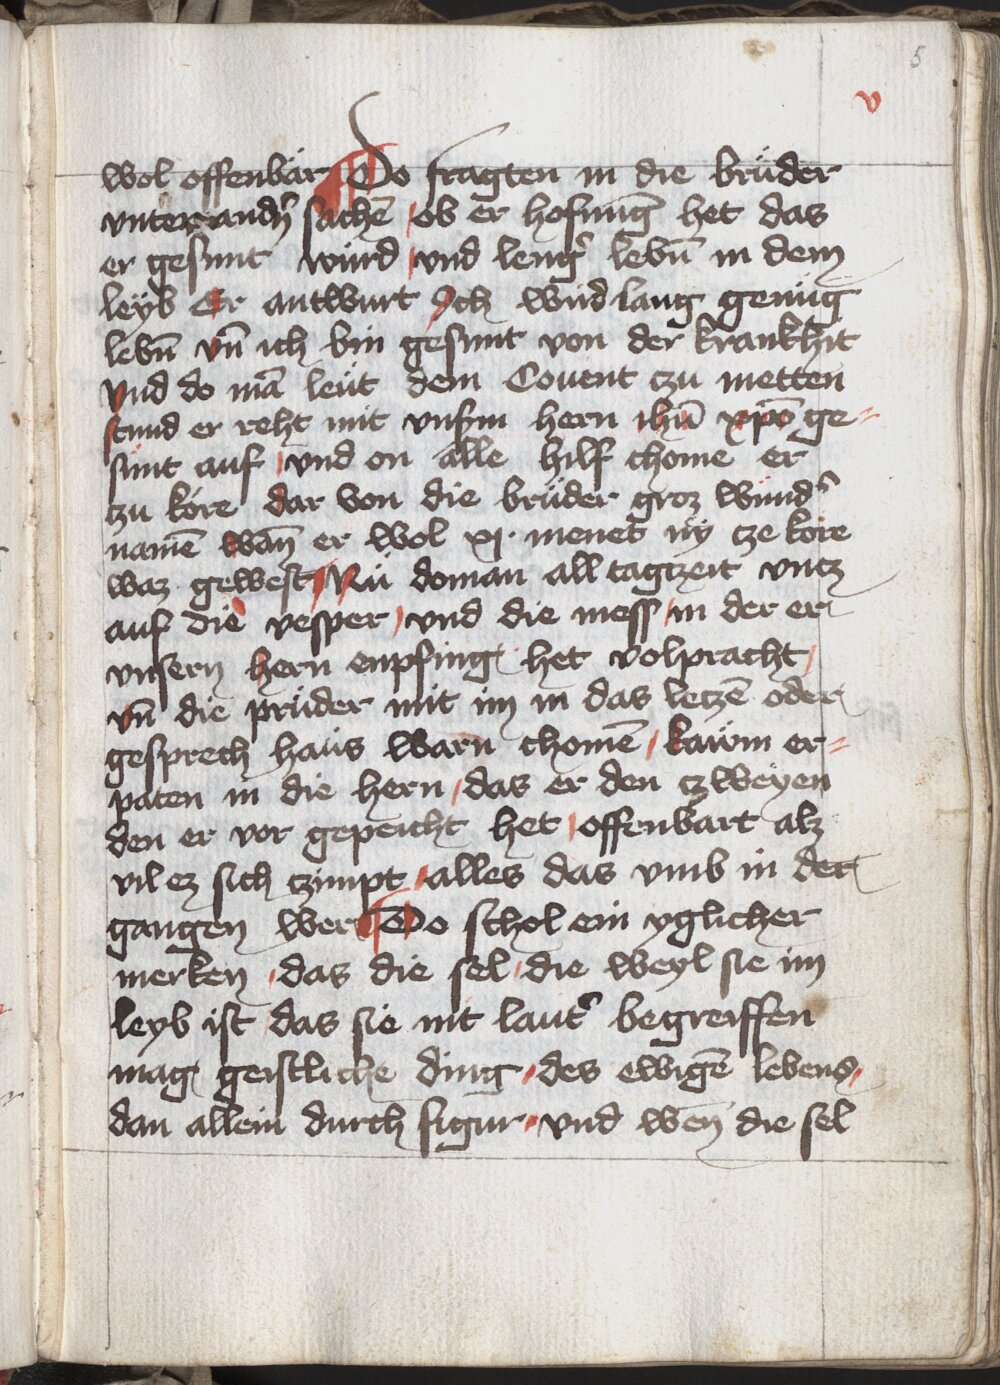 5
v
wol offenbar Do fragten in die brüder
unter andn̄ sachē ob er hofnung het das
er gesunt würd und leng̉ lebn̄ in dem
leyb Er antwurt Ich wird lang genüg
lebn̄ vn̄ ich bin gesunt von der krankhit
Vnd do mā leüt dem Couent czu metten
stund er reht mit vnsym hern ihū xpō ge-
sünt auf vnd on alle hilf chome er
czu kore dar von die brüder groz wund̉
namē wān er wol xj. menet ny cze kore
waz gewest Nü do man all tagzeit vntz
auf die vesper vnd die mess in der er
vnsern hern enpfing het volpracht
vn̄ die prüder mit im in das letzē oder
gesprech haüs warn chomē kawm er-
paten in die hern das er den czweyen
den er vor gepeicht het offenbart alz
vil ez sich czimpt alles das vmb in der
gangen wer Do schol ein yglicher
merken das die sel die weyl sie im
leyb ist das sie nit laut̉ begreiffen
mag geistliche ding des ewigē lebens
dan allein durch figur vnd wen die sel